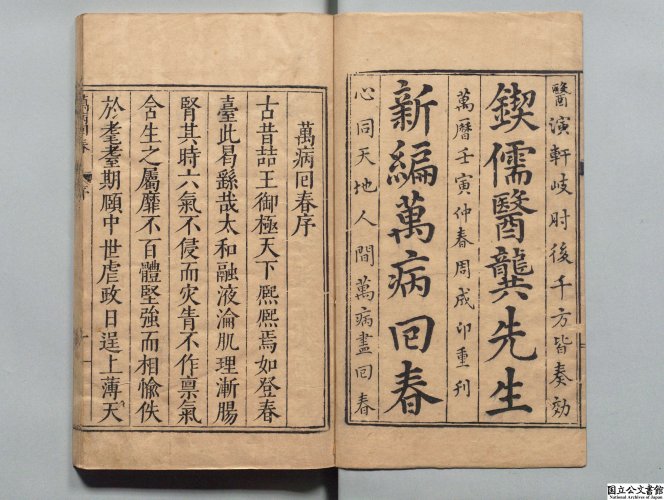 醫演軒岐肘後千方皆奏効
鍥儒醫龔先生
萬曆壬寅仲春周成卬重刊
新編萬病回春
心同天地人間萬病盡回春
萬病回春序
古昔喆王御極天下熈熈焉如登春
臺此曷繇哉太和融液淪肌理漸腸
腎其時六氣不侵而灾眚不作禀氣
含生之屬靡不百體堅強而相愉佚
於耄耋期頤中世虐政日逞上薄天
国立公文書館
National Archives of Japan